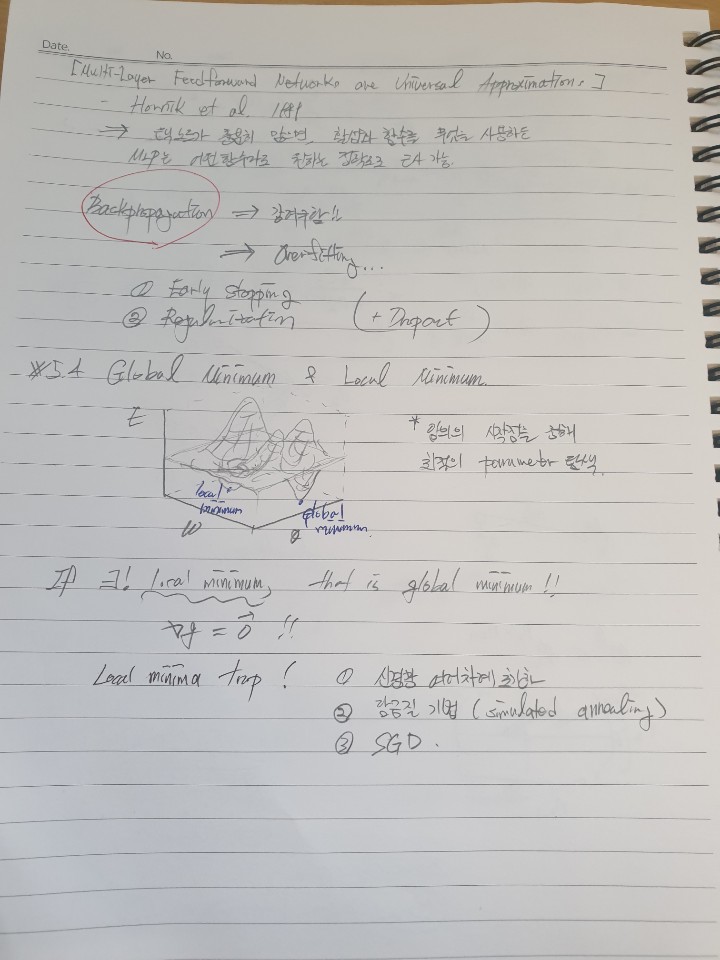 Date.
No.
[Multi-Layer Feedforward Networks are Universal Approximation.]
- Hornik et al. 1989
⇒ 은닉노드가 충분히 많으면, 활성화 함수를 무엇을 사용하든
MLP는 어떤 함수라도 원하는 정확도로 근사 가능.
Backpropagation ⇒ 강력하다!!
⇒ Overfitting...
① Early stopping
② Regularization (+ Dropout)
※5.4 Global Minimum & Local Minimum.
E
* 임의의 시작점을 통해
최적의 parameter 탐색.
local minimum
global minimum
W
θ
If ∃! local minimum, that is global minimum!!
∇f = 0⃗ !!
Local minima trap!
① 신경망 여러차례 초기화
② 담금질 기법 (simulated annealing)
③ SGD.